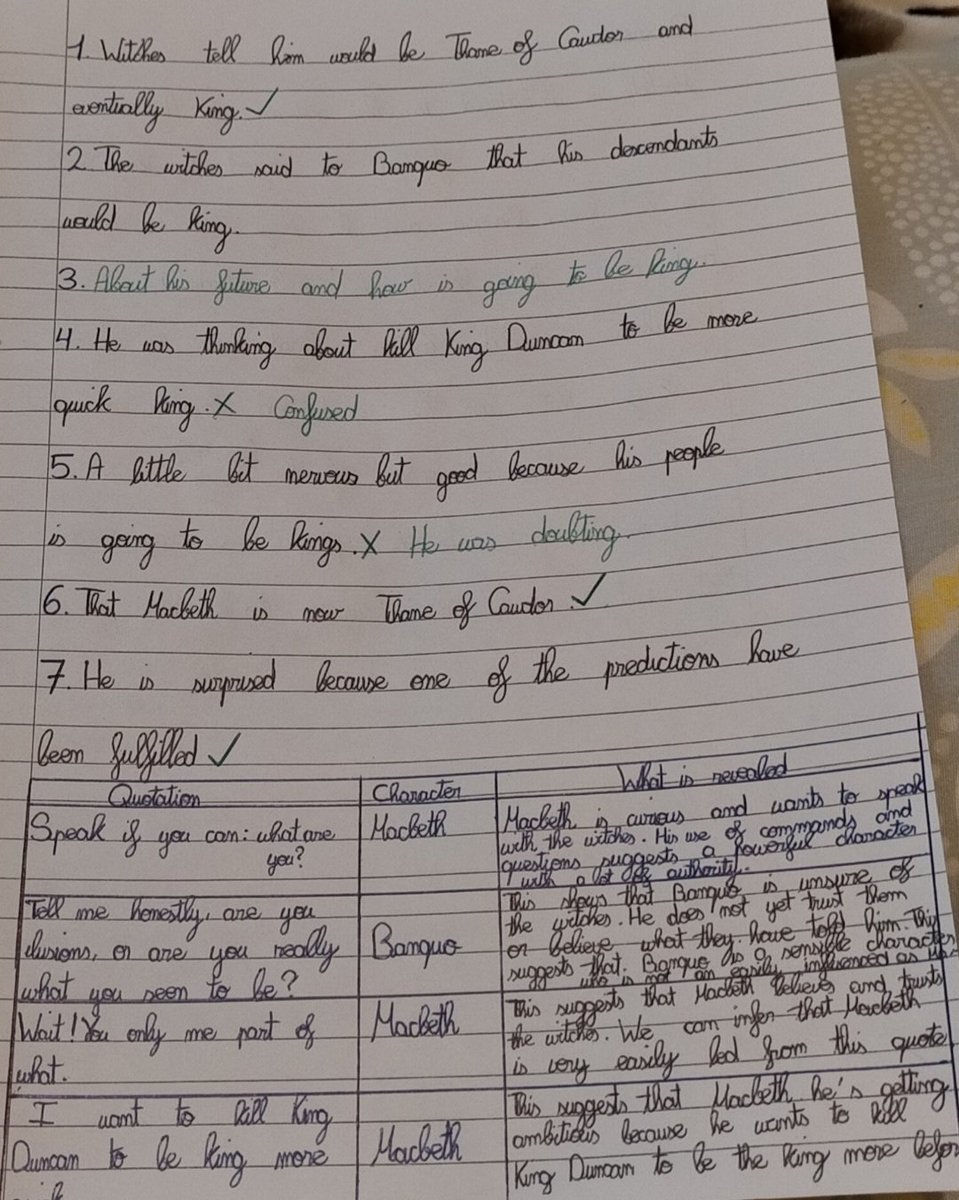 1. Witches tell him would be Thane of Caudor and
eventually King. ✓
2. The witches said to Banquo that his descendants
would be king.
3. About his future and how is going to be king.
4. He was thinking about kill King Duncan to be more
quick king. X Confused
5. A little bit nervous but good because his people
is going to be kings. X He was doubting.
6. That Macbeth is now Thane of Caudor. ✓
7. He is surprised because one of the predictions have
been fulfilled ✓
Quotation Character What is revealed
Speak if you can: what are
you?
Macbeth
Macbeth is curious and wants to speak
with the witches. His use of commands and
questions suggests a powerful character
with a lot of authority.
Tell me honestly, are you
ilusions, or are you really
what you seen to be?
Banquo
This shows that Banquo is unsure of
the witches. He does not yet trust them
or believe what they have told him. This
suggests that Banquo is a sensible character
who is not an easily influenced as
Wait! You only me part of
what.
Macbeth
This suggests that Macbeth believes and trusts
the witches. We can infer that Macbeth
is very easily led from this quote
I want to kill King
Duncan to be king more
Macbeth
This suggests that Macbeth he's getting
ambitious because he wants to kill
King Duncan to be the king more before